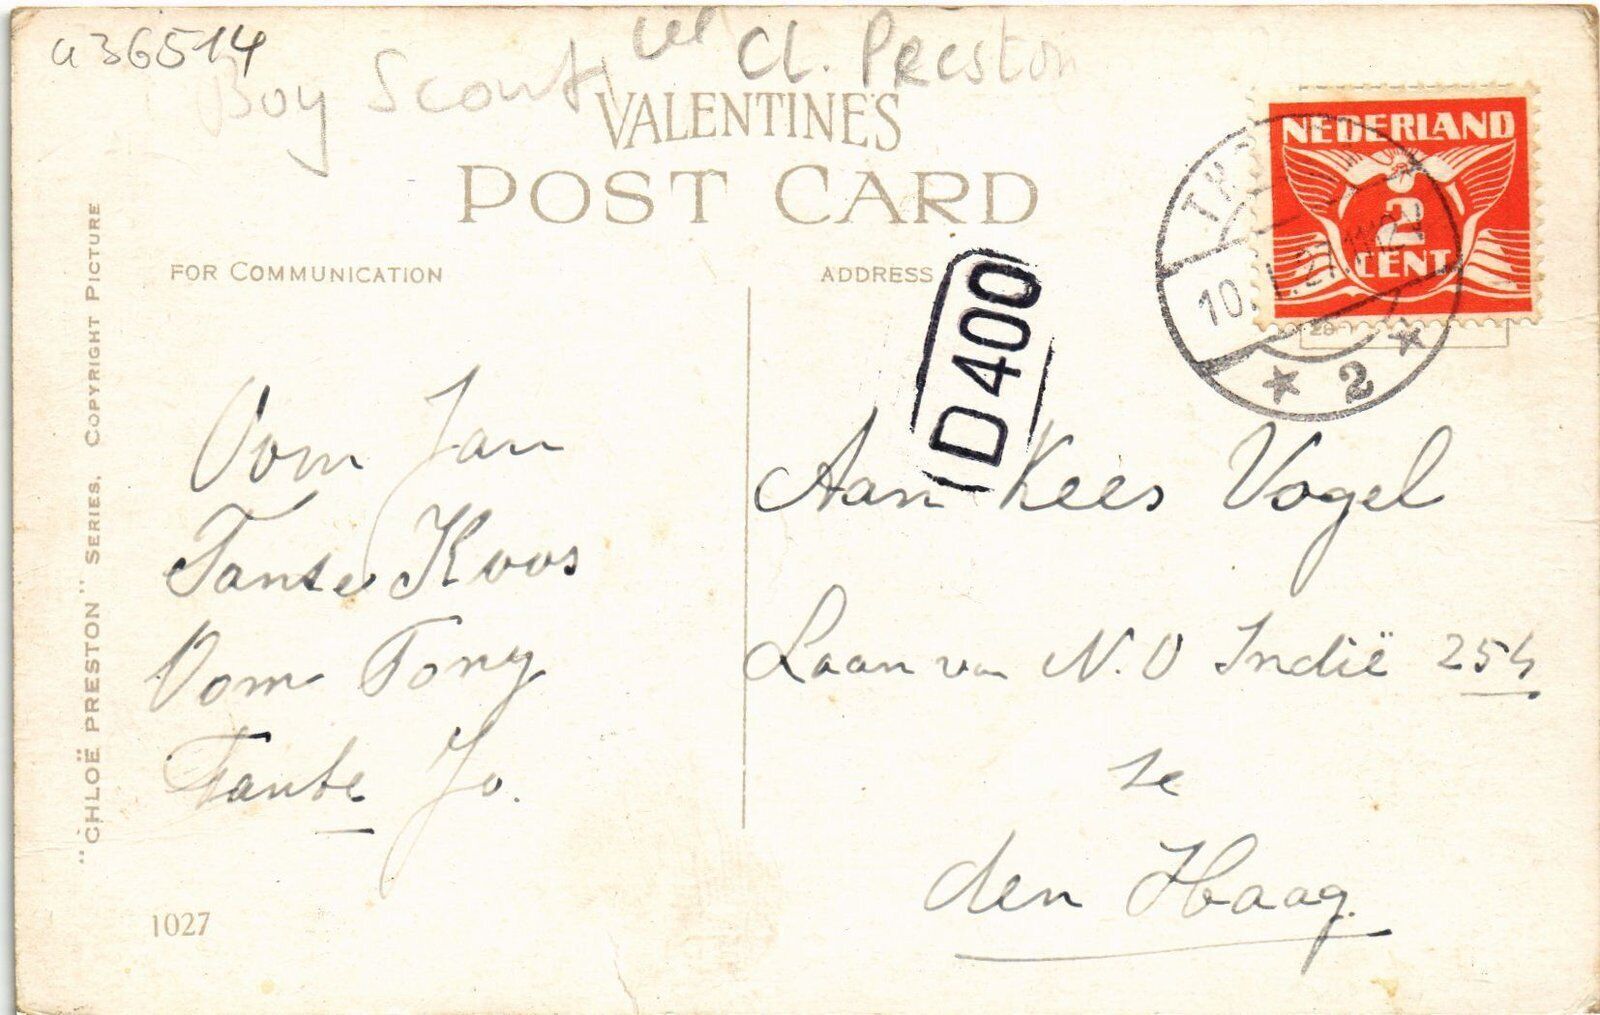 a36514
Boy Scout
Cl. Preston
VALENTINE'S
POST CARD
FOR COMMUNICATION
ADDRESS
D400
NEDERLAND
2
CENT
10. 1.27.
2
"CHLOË PRESTON" SERIES. COPYRIGHT PICTURE
Oom Jan
Tante Koos
Oom Tony
Tante Jo.
Aan Kees Vogel
Laan van N.O Indië 254
te
den Haag.
1027